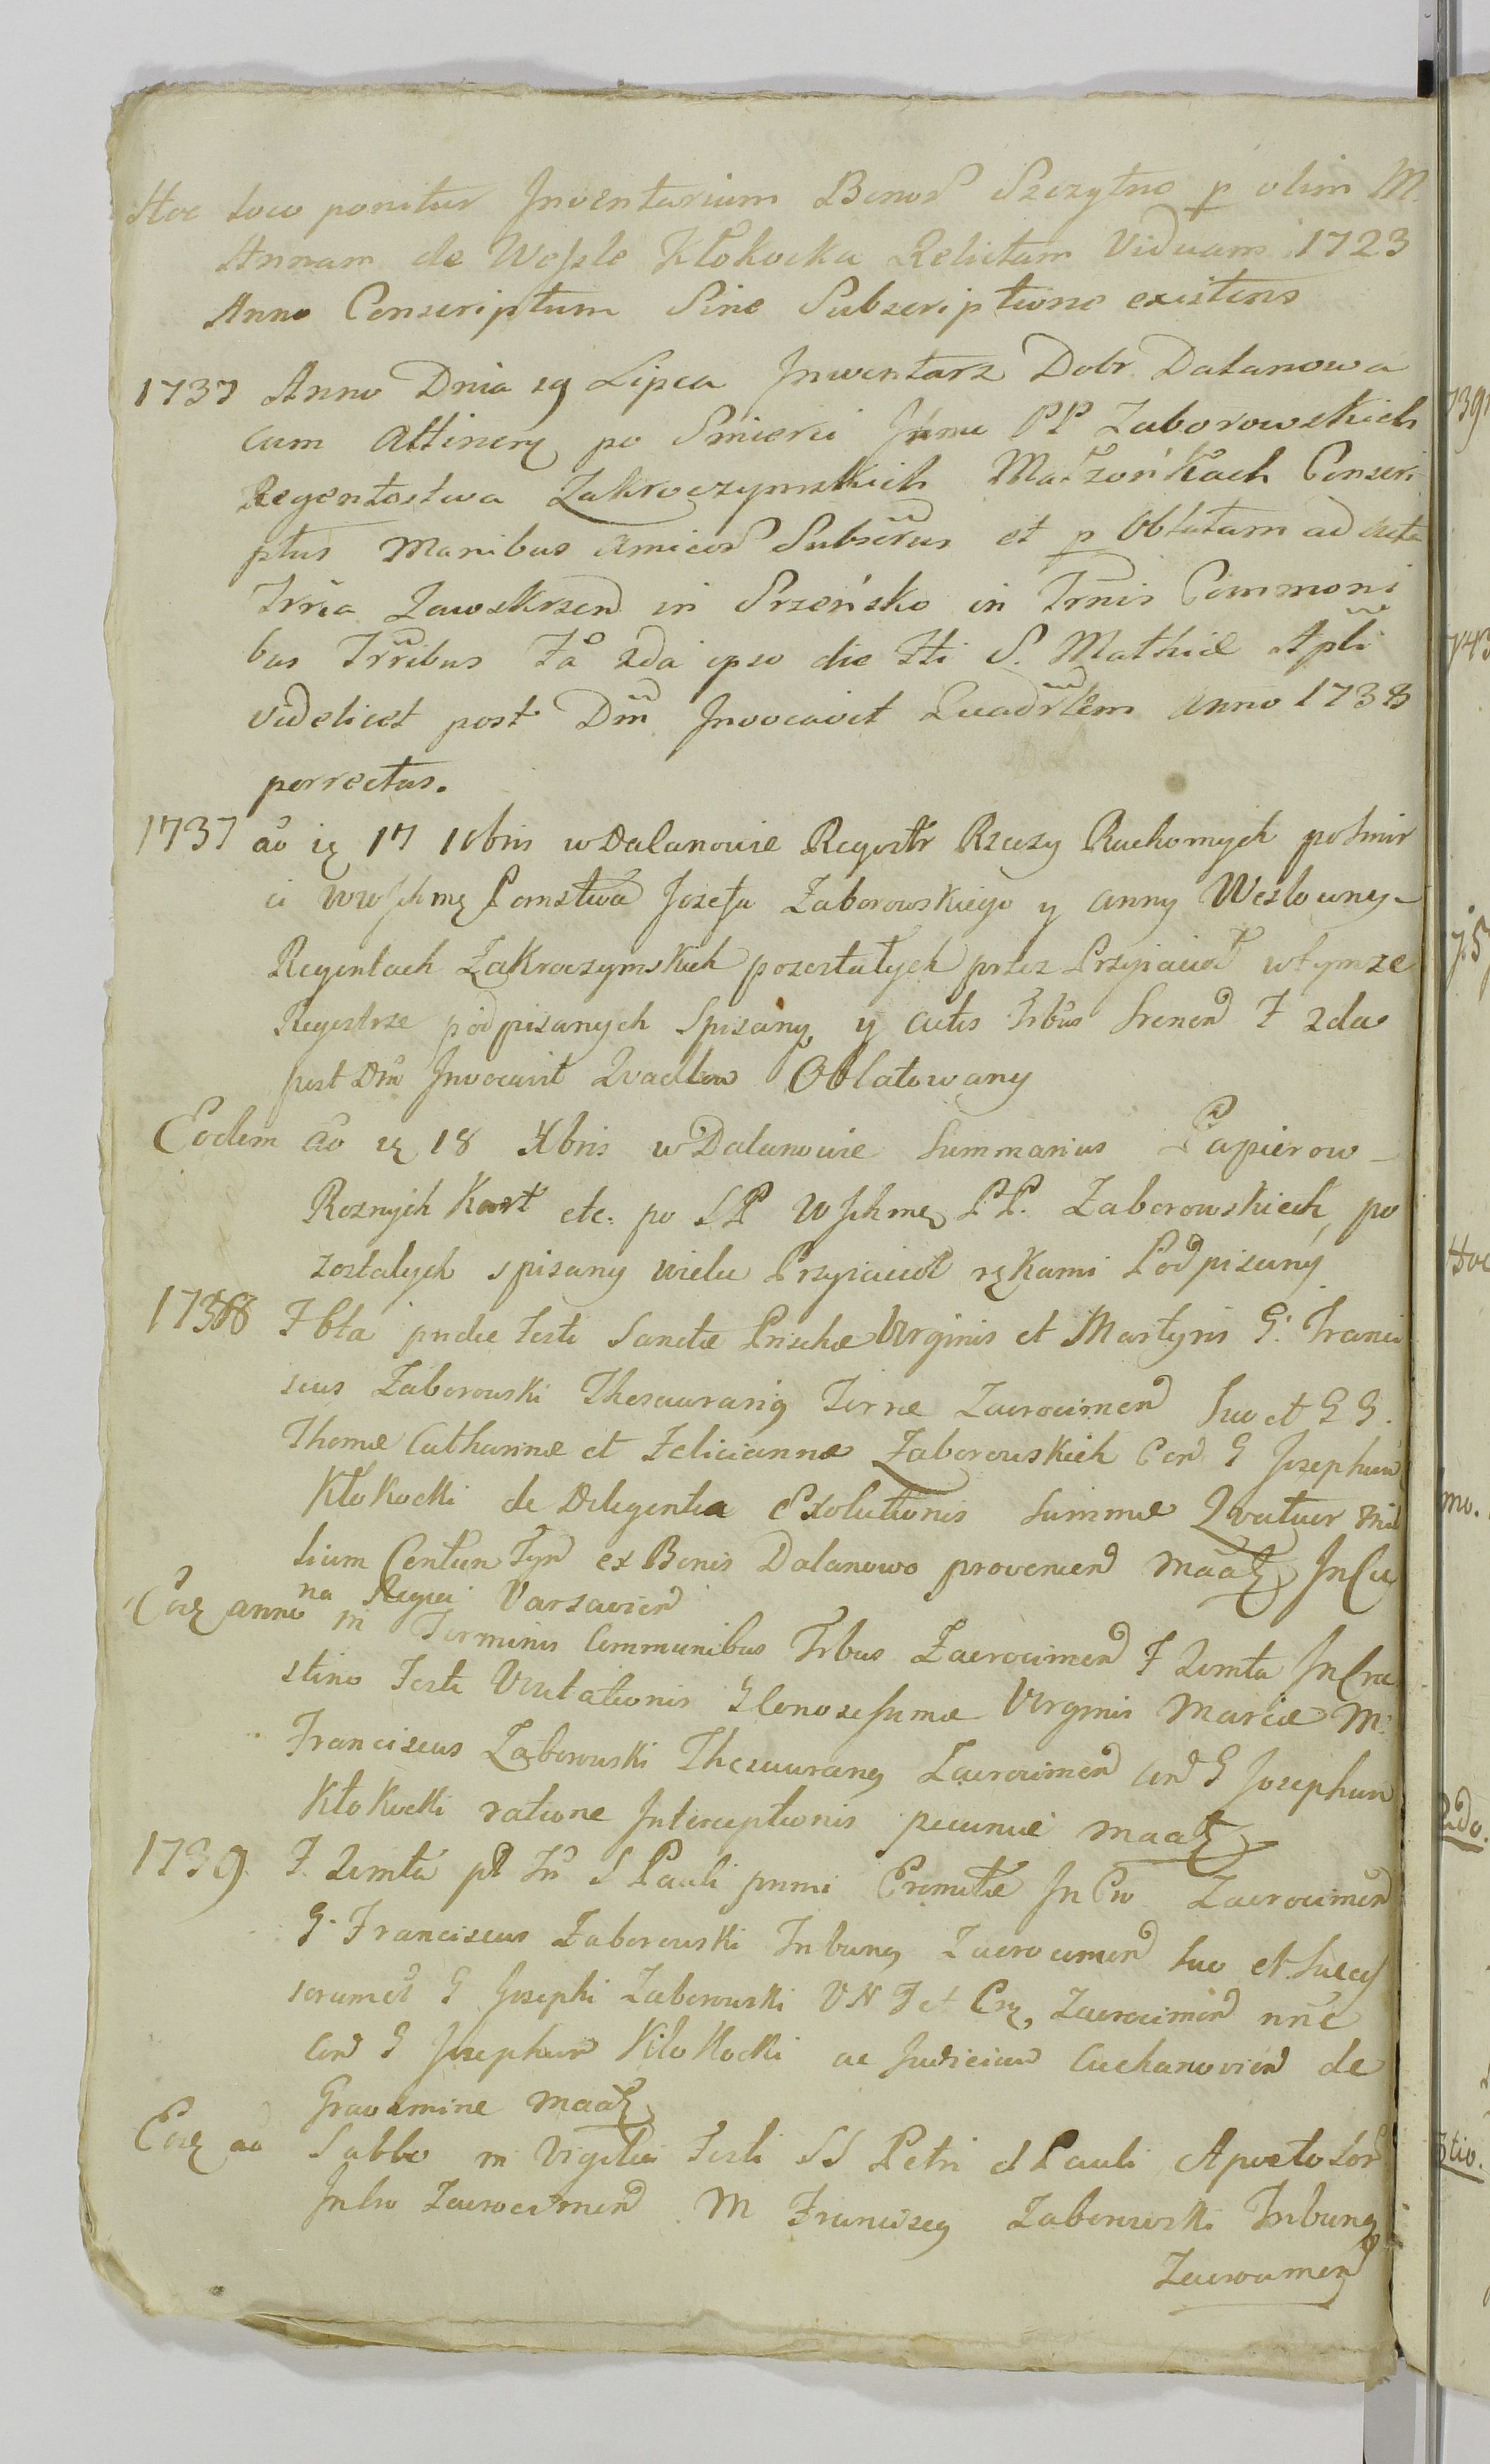 Hoc loco ponitur Inventarium Bonor Szczytno p olim M.
Annam de Wessle Kłokocka Relictam Viduam 1723
Anno Conscriptum Sine Subscriptione existens
1737 Anno Dnia 29 Lipca Inwentarz Dobr Dalanowa
cum Attinen po Smierci PP Zaborowskich
Regentostwa Zakroczymskich Małzońkach Conscri
ptus Manibus Amicor Subscrus et p Oblatam ad Acta
Trria Zawskrzen in Srzeńsko in Trnis Commoni
bus Trribus Fa 2da ipso die Fti S. Mathiæ Apli
videlicet post Dnm Invocavit Quadrlem anno 1738
porrectus.
1737 ao 17 Xbris w Dalanowie Regestr Rzeczy Ruchomych po Smir
ci Panstwa Jozefa Zaborowskiego y Anny Weslowny
Regentach Zakroczymskich pozostałych przez Przyiacioł wtymze
Regestrze podpisanych Spisany y actis Trbus Srenen F 2da
post Dni Invocavit Quadlem Oblatowany
Eodem ao 18 Xbris w Dalanowie Summarius Papierow
Roznych Kart etc. po SP PP. Zaborowskiech po
zostalych spisany wielu Przyiacioł rękami Podpisany
1738 Fbta pridie Festi Sanctæ Priscæ Virginis et Martyris G. Franci
scus Zaborowski Thesaurarig Terræ Zacrocimen Suo et G G.
Thomæ Catharinæ et Feliciannæ Zaborowskich Con G Josephum
Kłokocki de Diligentia Exolutionis Summæ Quatuor Mil
lium Centum Tyn ex Bonis Dalanowo provenien In Cu
ria Regia Varsavien
anno in Terminis Communibus Trbus Zacrocimen F 2emta In Cra
stino Festi Visitationis Gloriosissimæ Virginis Mariæ M.
Franciscus Zaborowski Thesaurarig Zacrocimen Con G Josephum
Kłokocki ratione Interceptionis pecuniæ
1739. F. 2emta pt S Pauli primi Eremitæ In Zacrocimen
G. Franciscus Zaborowski Tribung Zacrocimen Suo et Succes
sorum G Josephi Zaborowski V N T et Zacrocimen nnc
Con G Josephum Kłokocki ac Judicium Ciechanovien de
Gravamine
ao Sabbo in Vigilia Festi SS Petri et Pauli Apostolor
Zacrocimen M Franciscg Zaborowski Tribung
Zacrocimen